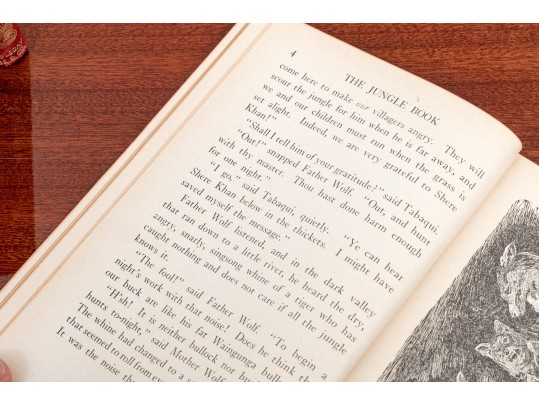 4
THE JUNGLE BOOK
come here to make our villagers angry. They will
scour the jungle for him when he is far away, and
we and our children must run when the grass is
set alight. Indeed, we are very grateful to Shere
Khan!"
"Shall I tell him of your gratitude?" said Tabaqui.
"Out!" snapped Father Wolf. "Out, and hunt
with thy master. Thou hast done harm enough
for one night."
"I go," said Tabaqui, quietly. "Ye can hear
Shere Khan below in the thickets. I might have
saved myself the message."
Father Wolf listened, and in the dark valley
that ran down to a little river, he heard the dry,
angry, snarly, singsong whine of a tiger who has
caught nothing and does not care if all the jungle
knows it.
"The fool!" said Father Wolf. "To begin a
night's work with that noise! Does he think th
our buck are like his fat Waingunga bulloc
"H'sh! It is neither bullock nor bu
hunts to-night," said Mother Wolf
The whine had changed to a
that seemed to roll from ev
It was the noise th